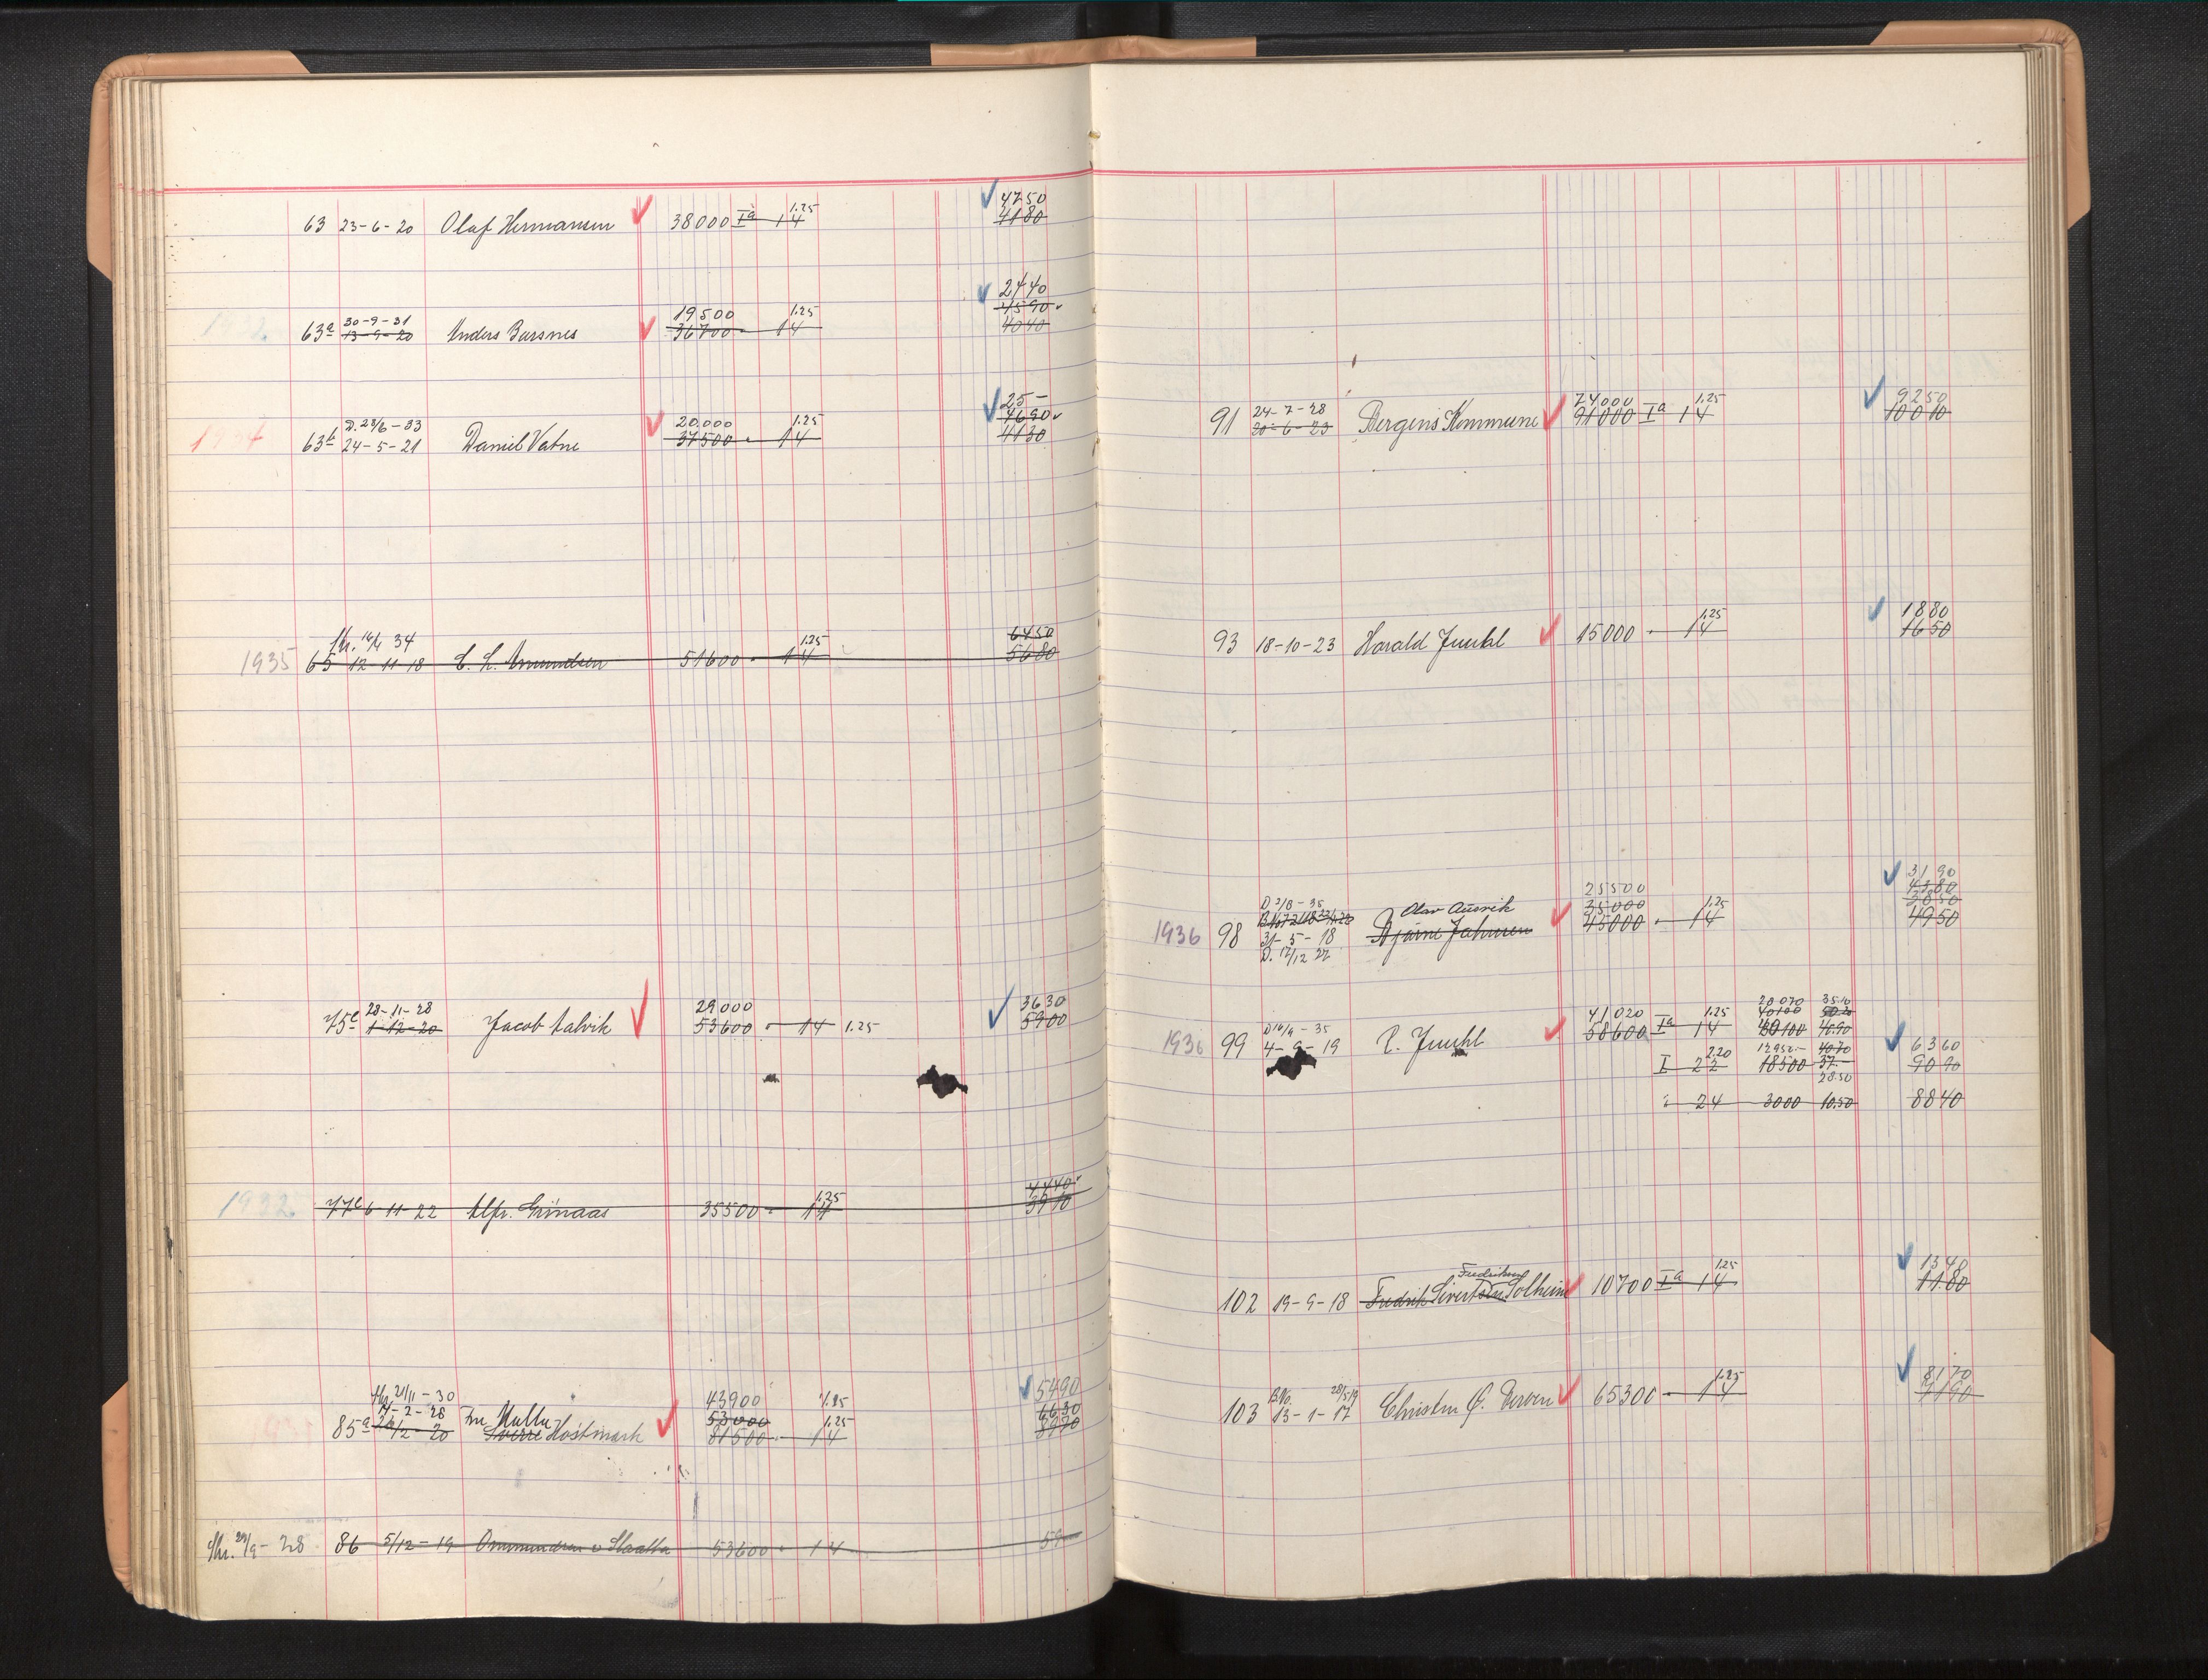 4750
63 23-6-20 Olaf Hermansen 38000 Ia 14 1.25 4180
2440
30-9-31 19500 1.25 4590
63a 13-9-20 Anders Barsnes 36700 " 14 4040
25-
D. 23/6-33 20.000 1.25 4690
1934 63b 24-5-21 Daniel Vatne 37500 " 14 4130
34 1.25 6450
1935 65 12-11-18 C. L. Amundsen 51600 " 14 5680
28-11-28 29000 3630
75c 1-12-20 Jacob Aalvik 53600 " 14 1.25 5900
1.25 4440
1932 77c 6-11-22 Alfr. 35500 " 14 3910
21/11-30 43900 1.25 5490
14-2-28 Fru 53000 1.25 6630
85a 12-20 Sverre Høstmark 81500 " 14 8970
29/9-28 86 5/12-19 Ommundsen 53600 " 14 59
24-7-28 74000 1.25 9250
91 20-6-23 Bergens Kommune 91000 Ia 14 10010
1.25 1880
93 18-10-23 Harald Juuhl 15000 " 14 1650
25500 3190
D 3/8-35 Olav 35000 1.25 4380
3850
1936 98 31-5-18 Bjarne Jahnsen 45000 " 14 4950
D. 17/12 27
28070 35.10
41020 1.25 40100 50.20
1936 99 4-9-19 P. Juuhl 58600 Ia 14 6360
2.20 12950- 40.70
I 22 18500 37.- 9090
28.50
" 24 3000 10.50 8840
Fredriksen 1.25 1340
102 19-9-18 Fredrik Sivertsen Solheim 10700 Ia 14 1180
28/5 19 1.25 8170
103 13-1-17 Christen 65300 " 14 7190